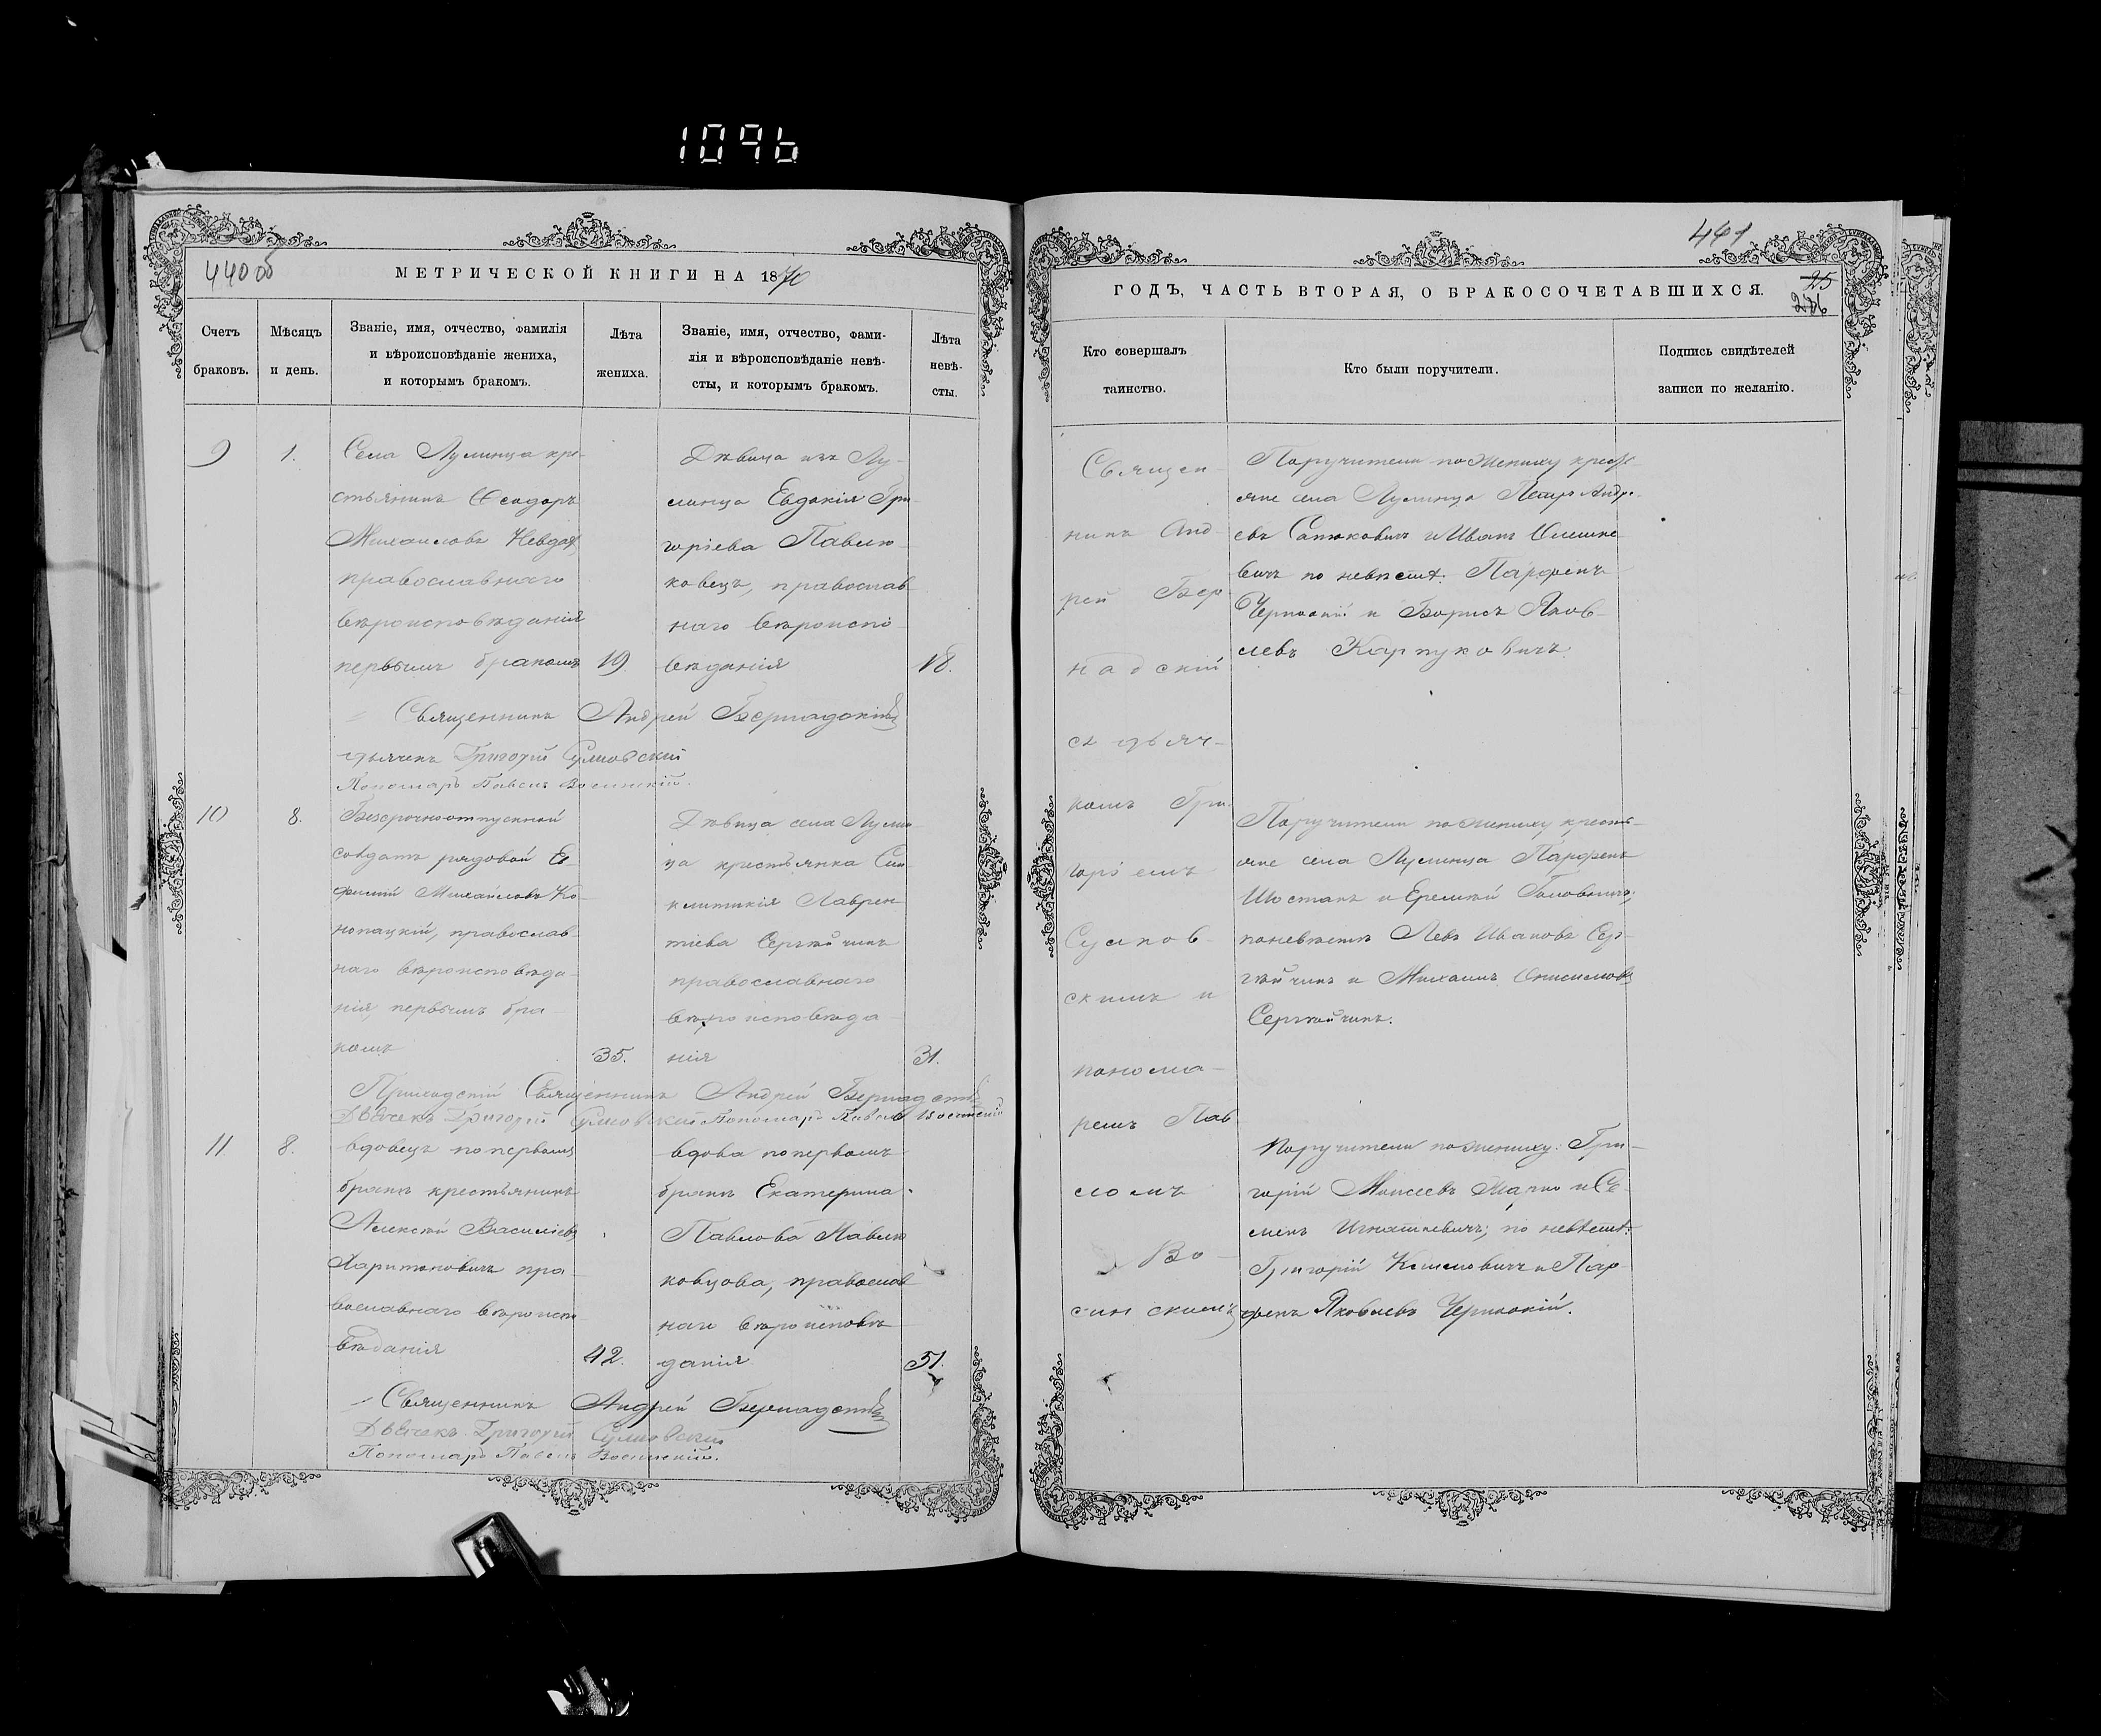 1096
440 об
МЕТРИЧЕСКОЙ КНИГИ НА 1870
Счетъ браковъ.
Мѣсяцъ и день.
Званіе, имя, отчество, фамилія
и вѣроисповѣданіе жениха,
и которымъ бракомъ.
Лѣта жениха.
Званіе, имя, отчество, фами-
лія и вѣроисповѣданіе невѣ-
сты, и которымъ бракомъ.
Лѣта невѣ-
сты.
9
1.
Села Лулинца кре-
стьянинъ Ѳеодоръ
Михаиловъ Невдах
православнаго
вѣроисповѣданія
первымъ бракомъ
19.
Дѣвица изъ Лу-
линца Евдокія Гри-
горіева Павлю-
ковецъ, православ
наго вѣроиспо-
вѣданія
18.
Священникъ Андрей Бернадскій
дьячекъ Григорій Сулковскій
Пономарь Павелъ Восинскій.
10
8.
Безсрочноотпускной
солдатъ рядовой Е-
фимій Михайловъ Ко-
нопацкій, православ-
наго вѣроисповѣда-
нія, первымъ бра-
комъ
35.
Дѣвица села Лулин-
ца крестьянка Син-
клитикія Лаврен-
тіева Сергѣйчикъ
православнаго
вѣроисповѣда-
нія
31.
Приходскій Священникъ Андрей Бернадскій
Дьячекъ Григорій Сулковскій Пономарь Павелъ Восинскій
11
8.
вдовецъ по первомъ
бракѣ крестьянинъ
Алексѣй Василіевъ
Харитоновичъ пра-
вославнаго вѣроиспо
вѣданія
42.
вдова по первомъ
бракѣ Екатерина
Павлова Павлю
ковцова, православ
наго вѣроисповѣ
данія
51.
Священникъ Андрей Бернадскій
Дьячекъ Григорій Сулковскій
Пономарь Павелъ Восинскій.
441
25
ГОДЪ, ЧАСТЬ ВТОРАЯ, О БРАКОСОЧЕТАВШИХСЯ.
Кто совершалъ
таинство.
Кто были поручители.
Подпись свидѣтелей
записи по желанію.
Священ-
никъ Анд-
рей Бер-
надскій
съ дьяч-
комъ Гри-
горіемъ
Сулков-
скимъ и
понома-
ремъ Пав
ломъ
Во-
синскимъ
Поручители по жениху кресть
яне села Лулинца Петръ Андре-
евъ Санюковичъ и Иванъ Олешке
вичъ по невѣстѣ: Парфенъ
Чернокій и Борисъ Яков-
левъ Карпуковичъ.
Поручители по жениху кресть-
яне села Лулинца Парфенъ
Шостакъ и Еремѣй Головничъ;
по невѣстѣ Левъ Ивановъ Сер-
гѣйчикъ и Михаилъ Онисимовъ
Сергѣйчикъ.
Поручители по жениху: Гри-
горій Моисеевъ и Се-
менъ Игнаткевичъ; по невѣстѣ:
Григорій и Пар-
фенъ Яковлевъ Чернокій.